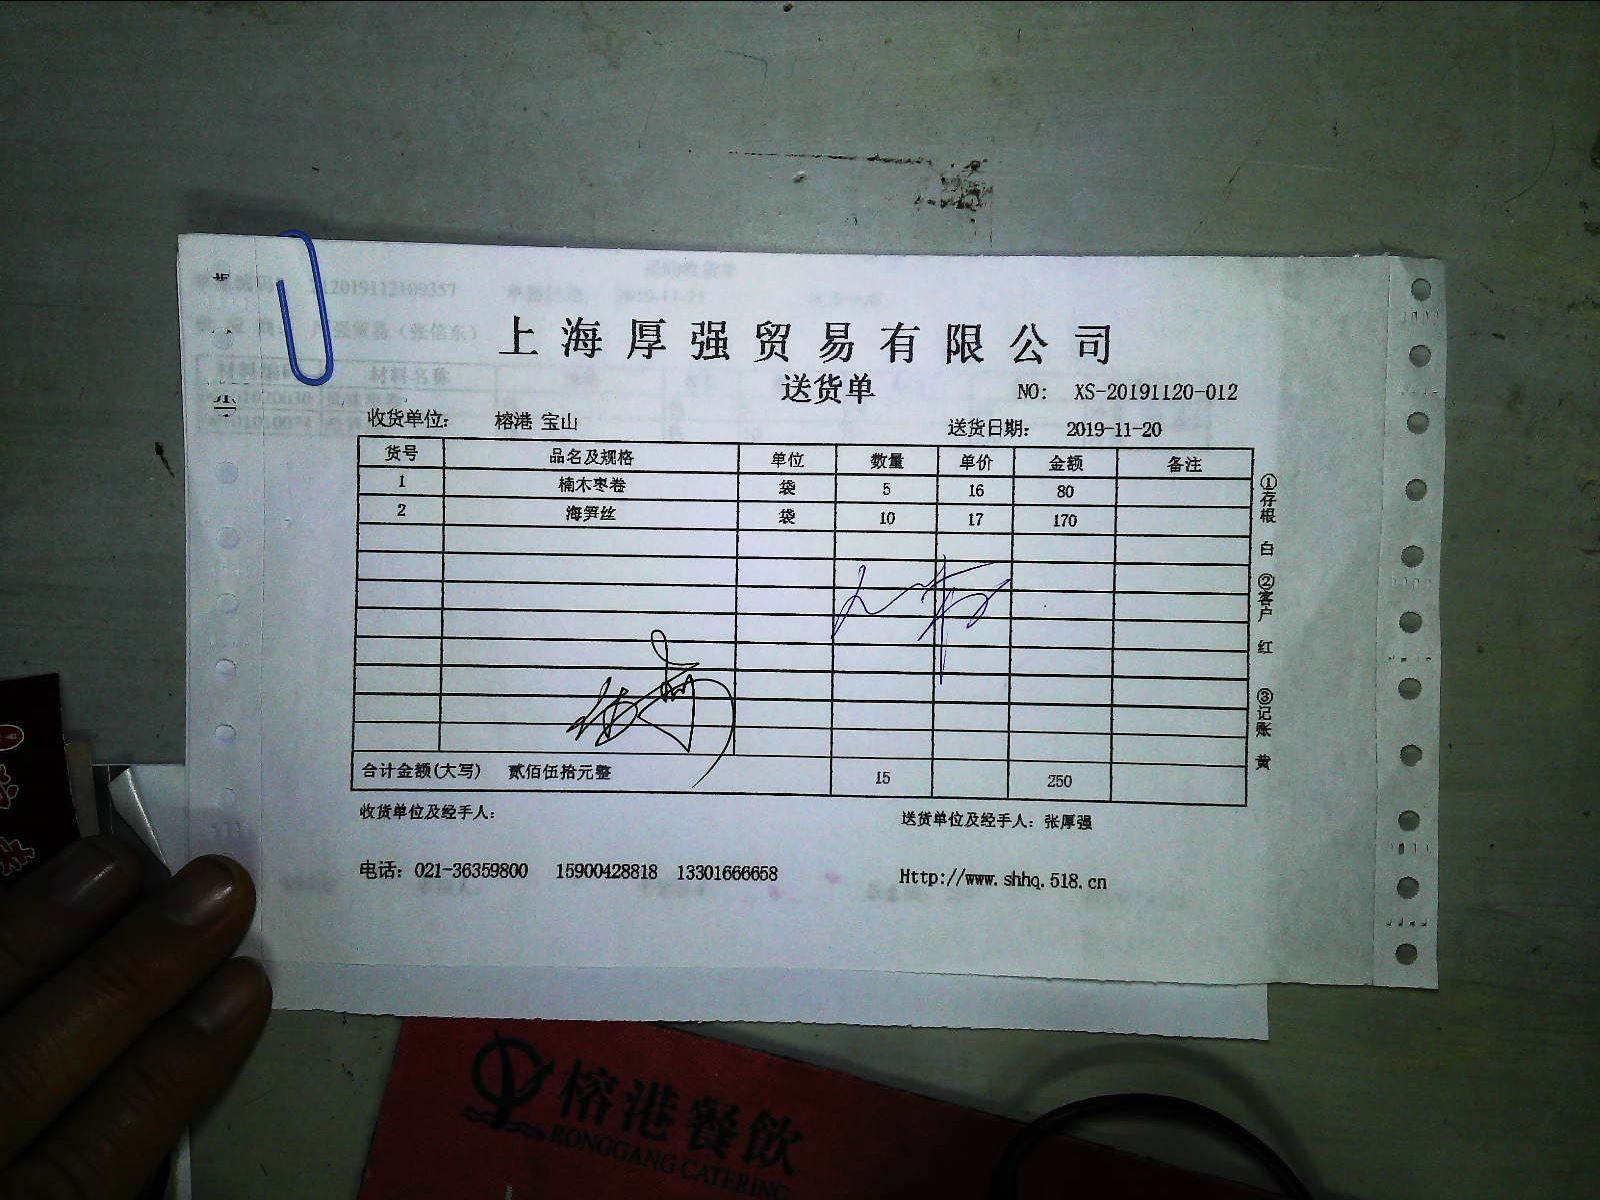 上海厚强贸易有限公司
送货单
NO: XS-20191120-012
收货单位: 榕港 宝山
送货日期: 2019-11-20
货号 品名及规格 单位 数量 单价 金额 备注
1 楠木枣卷 袋 5 16 80
2 海笋丝 袋 10 17 170
合计金额(大写) 贰佰伍拾元整 15 250
①存根 白 ②客户 红 ③记账 黄
收货单位及经手人:
送货单位及经手人: 张厚强
电话: 021-36359800 15900428818 13301666658
Http://www.shhq.518.cn
榕港餐飲
RONGGANG CATERING